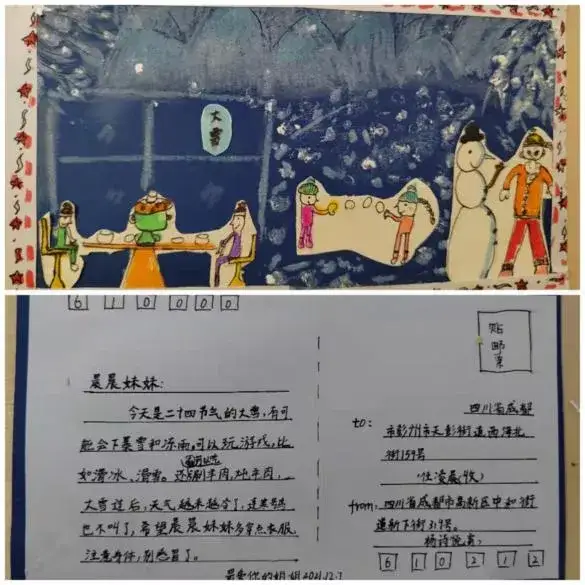 大雪
6 1 0 0 0 0
贴邮票
晨晨妹妹:
今天是二十四节气的大雪,有可
能会下暴雪和冻雨,可以玩游戏,比
如滑冰、滑雪。还 涮羊肉,炖羊肉,
大雪过后,天气越来越冷了,连寒号鸟
也不叫了,希望晨晨妹妹多穿点衣服
注意身体,别感冒了。
最爱你的姐姐2021.12.7
四川省成都
to: 市彭州市天彭街道西海北
街159号
(任凌晨收)
from: 四川省成都市高新区中和街
道新下街319号。
杨诗
6 1 0 2 1 2